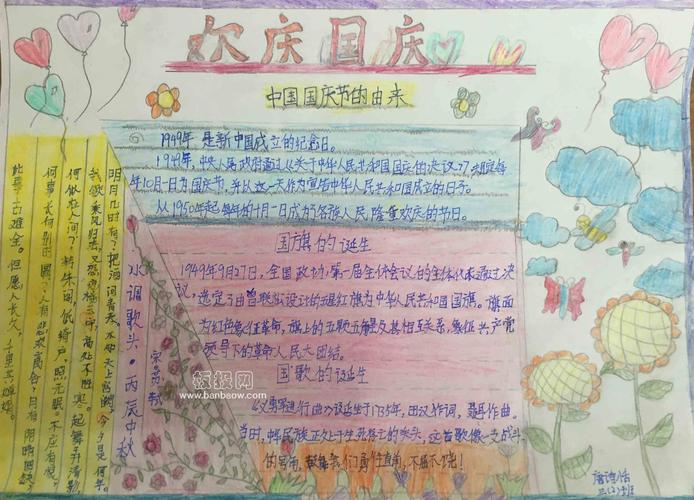 欢庆国庆
中国国庆节的由来
1949年 是新中国成立的纪念日。
1949年,中央人民政府通过《关于中华人民共和国国庆的决议》,规定每
年10月1日为国庆节,并以这一天作为宣告中华人民共和国成立的日子。
从1950年起每年的十月一日成为了各族人民隆重欢庆的节日。
国旗的诞生
1949年9月27日,全国政协第一届全体会议的全体代表通过决
议,选定了由曾联松设计的五星红旗为中华人民共和国国旗。旗面
为红色象征革命,旗上的五颗五角星及其相互关系,象征共产党
领导下的革命人民大团结。
国歌的诞生
《义勇军进行曲》诞生于1935年,田汉作词,聂耳作曲。
当时,中华民族正处于生死存亡的关头,这首歌像一支战斗
的号角,鼓舞我们勇往直前,不屈不饶!
水调歌头·丙辰中秋
宋 苏轼
明月几时有?把酒问青天。不知天上宫阙,今夕是何年。
我欲乘风归去,又恐琼楼玉宇,高处不胜寒。起舞弄清影,
何似在人间?转朱阁,低绮户,照无眠。不应有恨,
何事长向别时圆?人有悲欢离合,月有阴晴圆缺,
此事古难全。但愿人长久,千里共婵娟。
板报网
www.banbaow.com
三(2)班